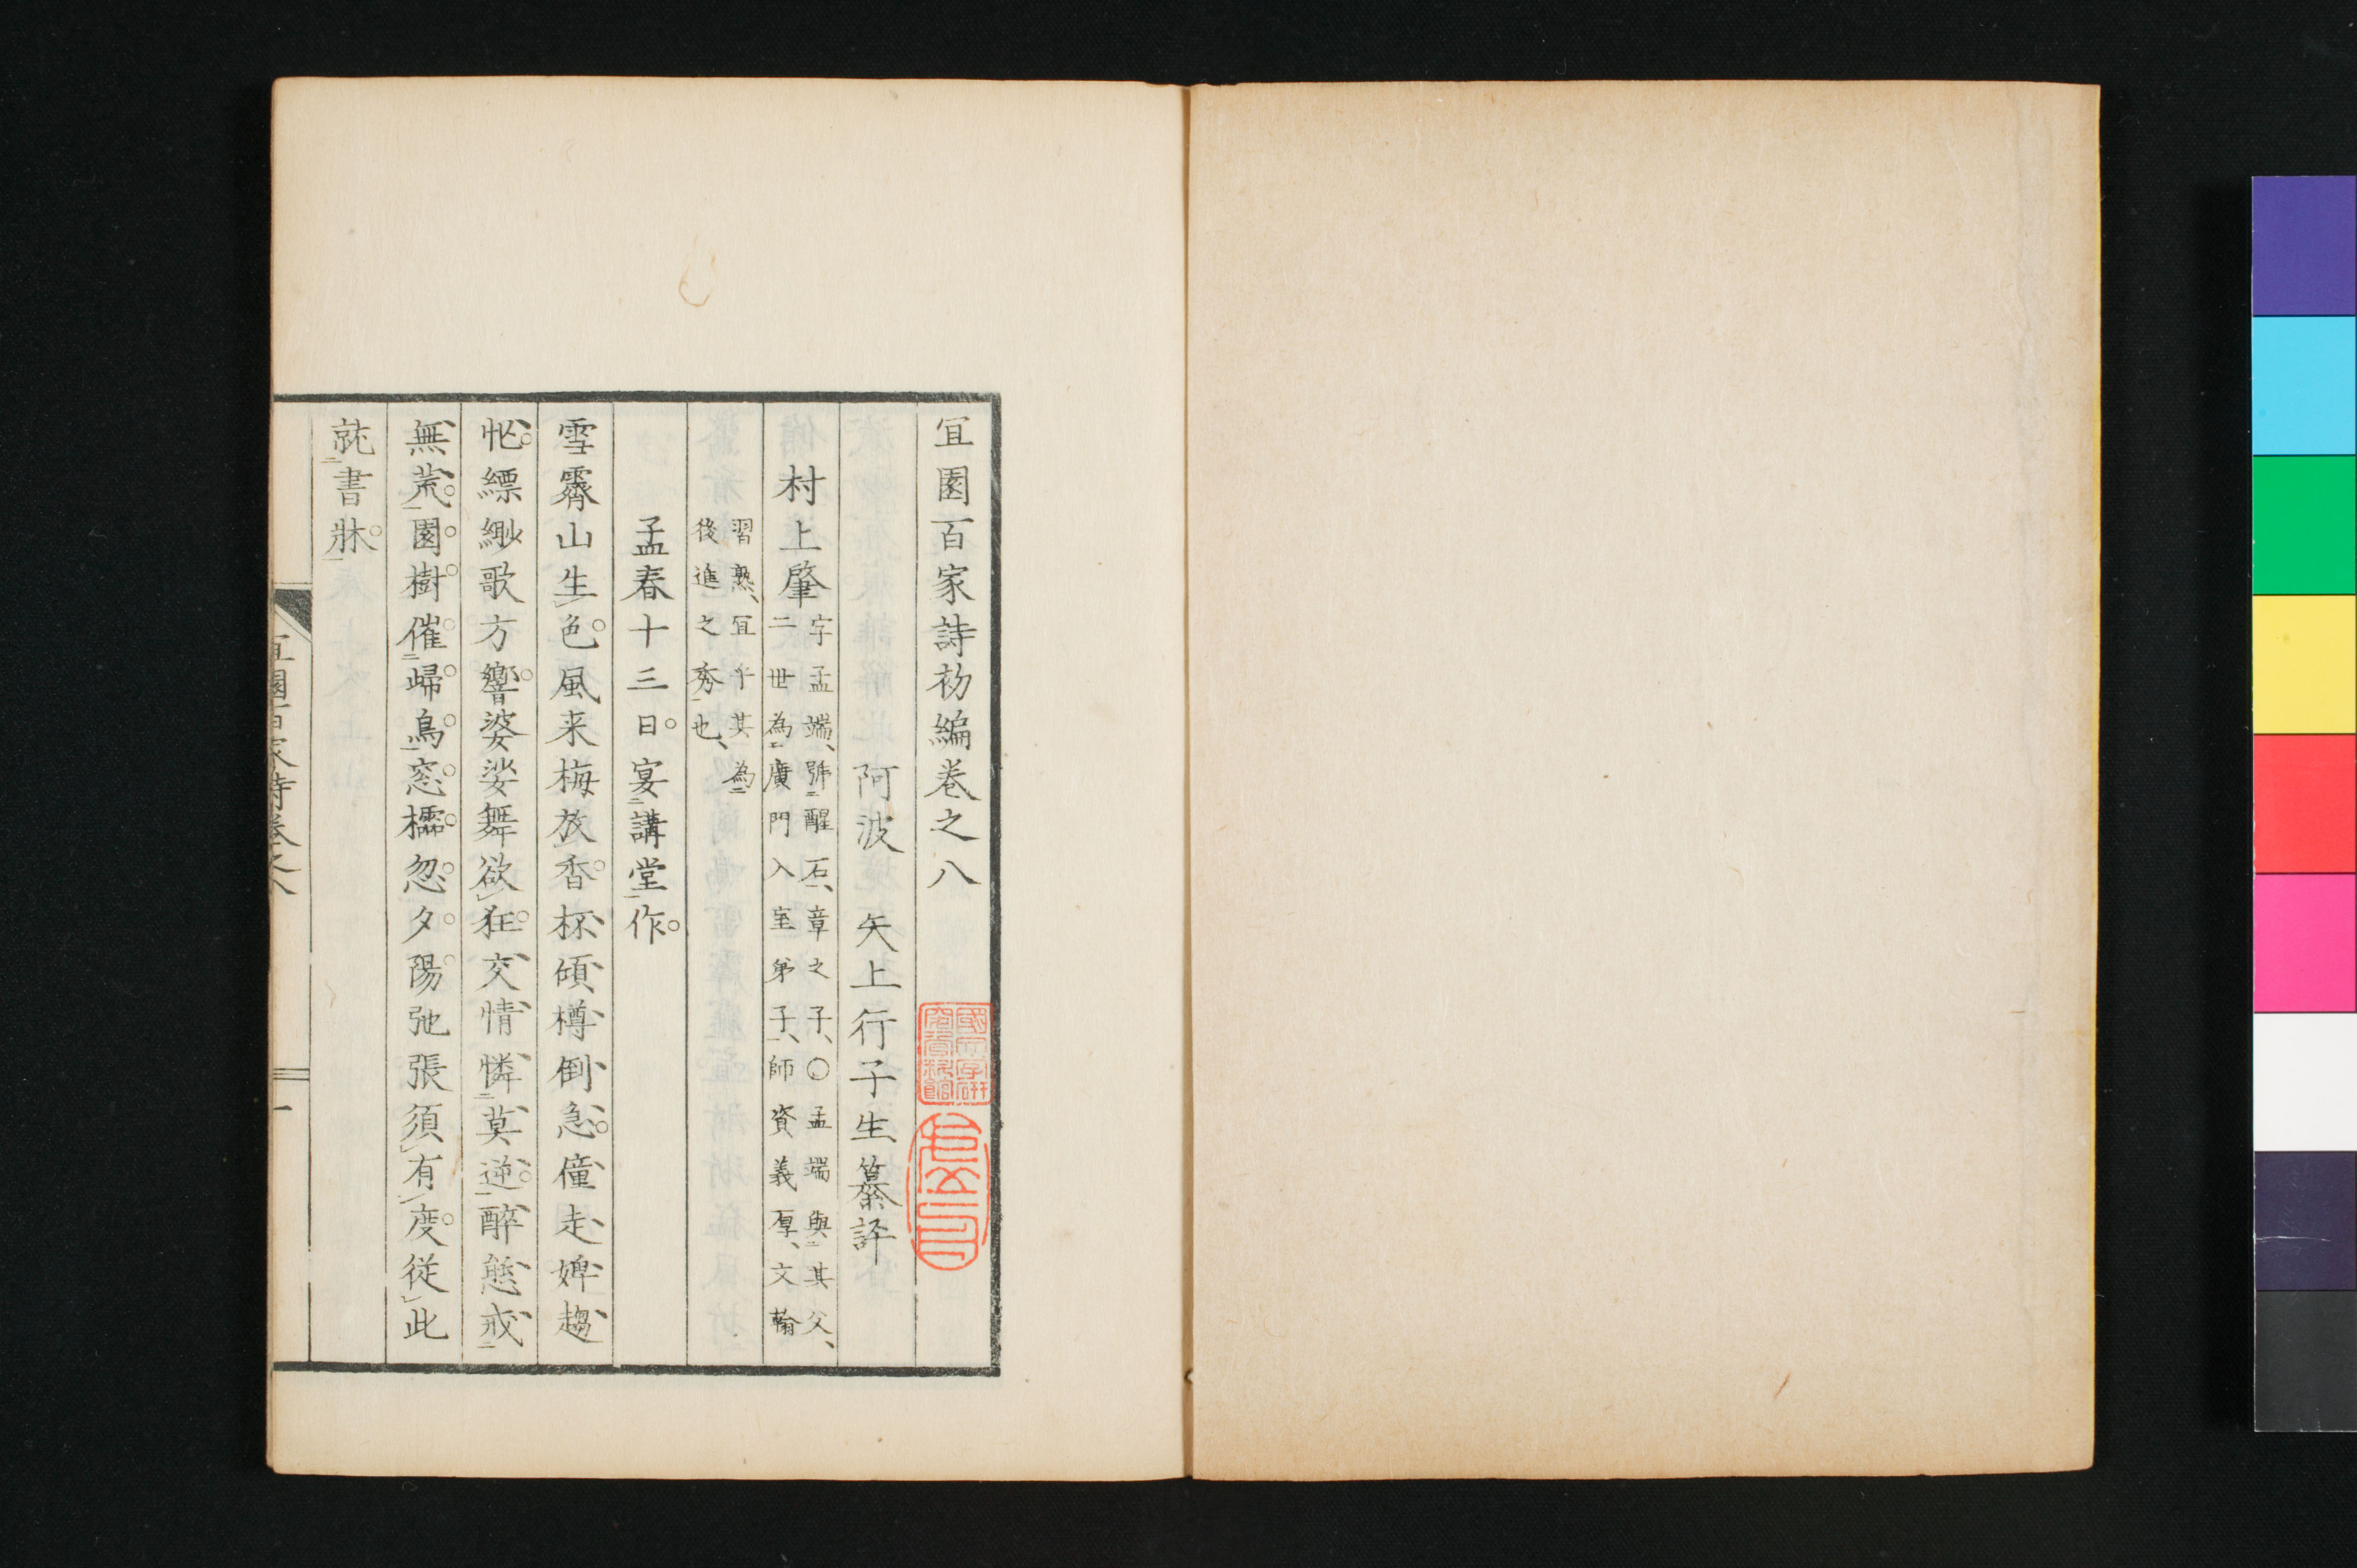 宜園百家詩初編巻之八
阿波 矢上行子生纂評
村上肇
字孟端、號醒石、章之子、○孟端與其父、
二世為廣門入室弟子、師資義厚、文翰
習熟、宜乎其為
後進之秀也、
孟春十三日。宴講堂作。
雪霽山生色。風来梅放香。杯傾樽倒急。僮走婢趨
忙。縹緲歌方響。婆娑舞欲狂。交情憐莫逆。醉態戒
無荒。園樹催歸鳥。窓櫺忽夕陽。弛張須有度。從此
就書牀。
宜園百家詩巻之八
一